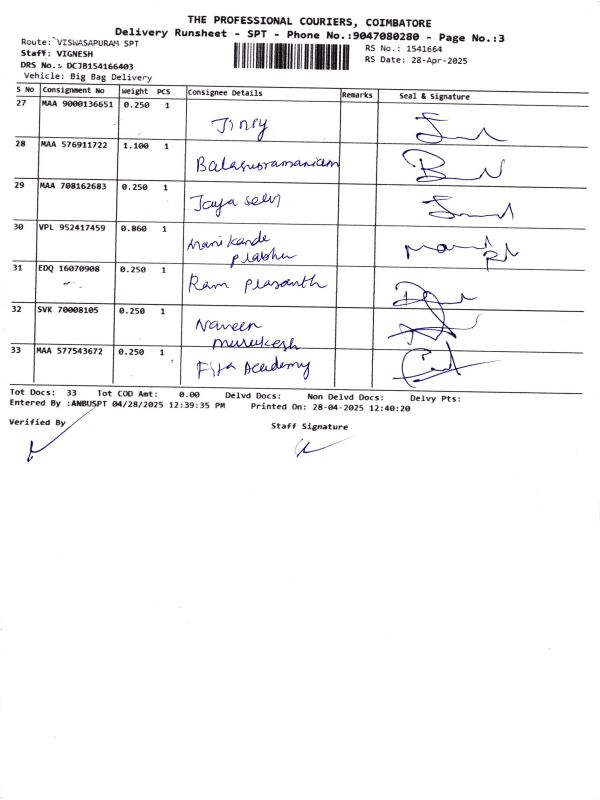 THE PROFESSIONAL COURIERS, COIMBATORE
Delivery Runsheet - SPT - Phone No.:9047080280 - Page No.:3
Route: VISWASAPURAM SPT
RS No.: 1541664
Staff: VIGNESH
RS Date: 28-Apr-2025
DRS No.: DCJB154166403
Vehicle: Big Bag Delivery
S No Consignment No Weight PCS Consignee Details Remarks Seal & Signature
27 MAA 9000136651 0.250 1
Jinsy
28 MAA 576911722 1.100 1
Balasusramaniam
29 MAA 708162683 0.250 1
Jaya selvi
30 VPL 952417459 0.860 1
manikanda
Prabhu
31 EDQ 16070908 0.250 1
Ram Prasanth
32 SVK 70008105 0.250 1
Naveen
murukesh
33 MAA 577543672 0.250 1
Fita Academy
Tot Docs: 33 Tot COD Amt: 0.00 Delvd Docs: Non Delvd Docs: Delvy Pts:
Entered By :ANBUSPT 04/28/2025 12:39:35 PM Printed On: 28-04-2025 12:40:20
Verified By
Staff Signature